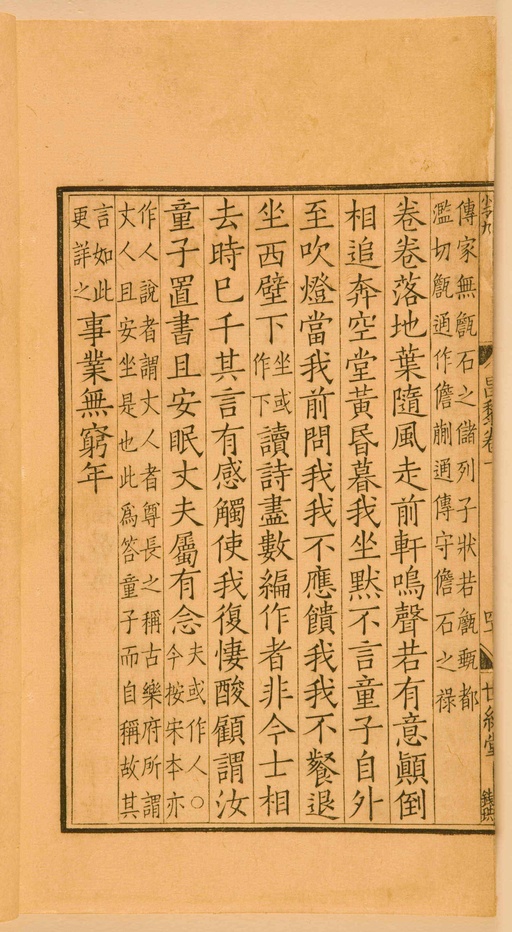 昌黎卷一
世綵堂
傳家無甔石之儲列子狀若甔甀都
濫切甔通作儋蒯通傳守儋石之祿
卷卷落地葉隨風走前軒鳴聲若有意顛倒
相追奔空堂黃昏暮我坐默不言童子自外
至吹燈當我前問我我不應饋我我不餐退
坐西壁下坐或作下讀詩盡數編作者非今士相
去時已千其言有感觸使我復悽酸顧謂汝
童子置書且安眠丈夫屬有念夫或作人○今按宋本亦
作人說者謂丈人者尊長之稱古樂府所謂
丈人且安坐是也此爲答童子而自稱故其
言如此更詳之事業無窮年